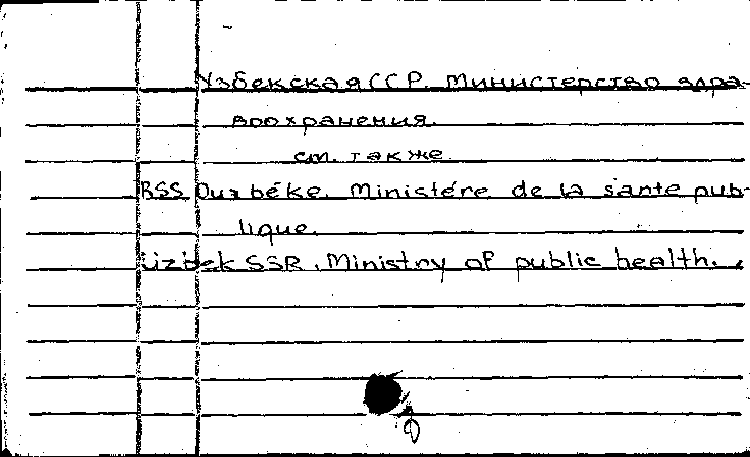 Узбекская ССР. Министерство здра-
воохранения.
см. также
RSS Ouzbéke. Ministére de la sante pub-
lique.
Uzbek SSR. Ministry of public health.